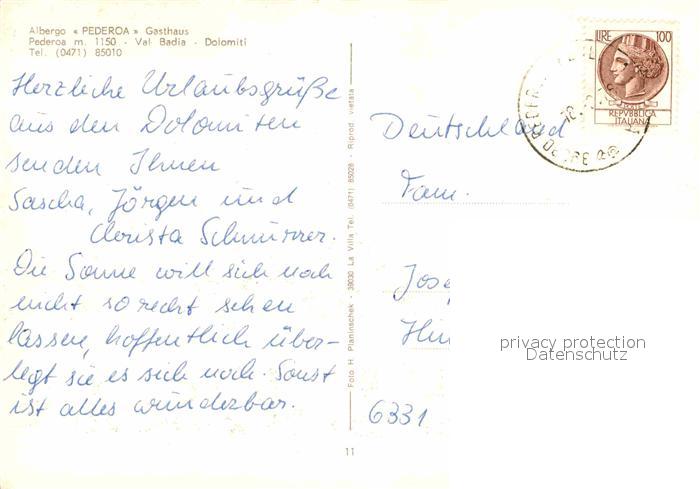 Albergo « PEDEROA » Gasthaus
Pederoa m. 1150 - Val Badia - Dolomiti
Tel. (0471) 85010
Herzliche Urlaubsgrüße
aus den Dolomiten
senden Ihnen
Sascha, Jörgen und
Christa Schnürrer.
Die Sonne will sich noch
nicht so recht sehen
lassen, hoffentlich über-
legt sie es sich noch. Sonst
ist alles wunderbar.
Foto H. Planinschek - 39030 La Villa Tel. (0471) 85028 - Riprod. vietata
11
LIRE 100
REPVBBLICA
ITALIANA
Deutschland
Fam.
6331
privacy protection
Datenschutz